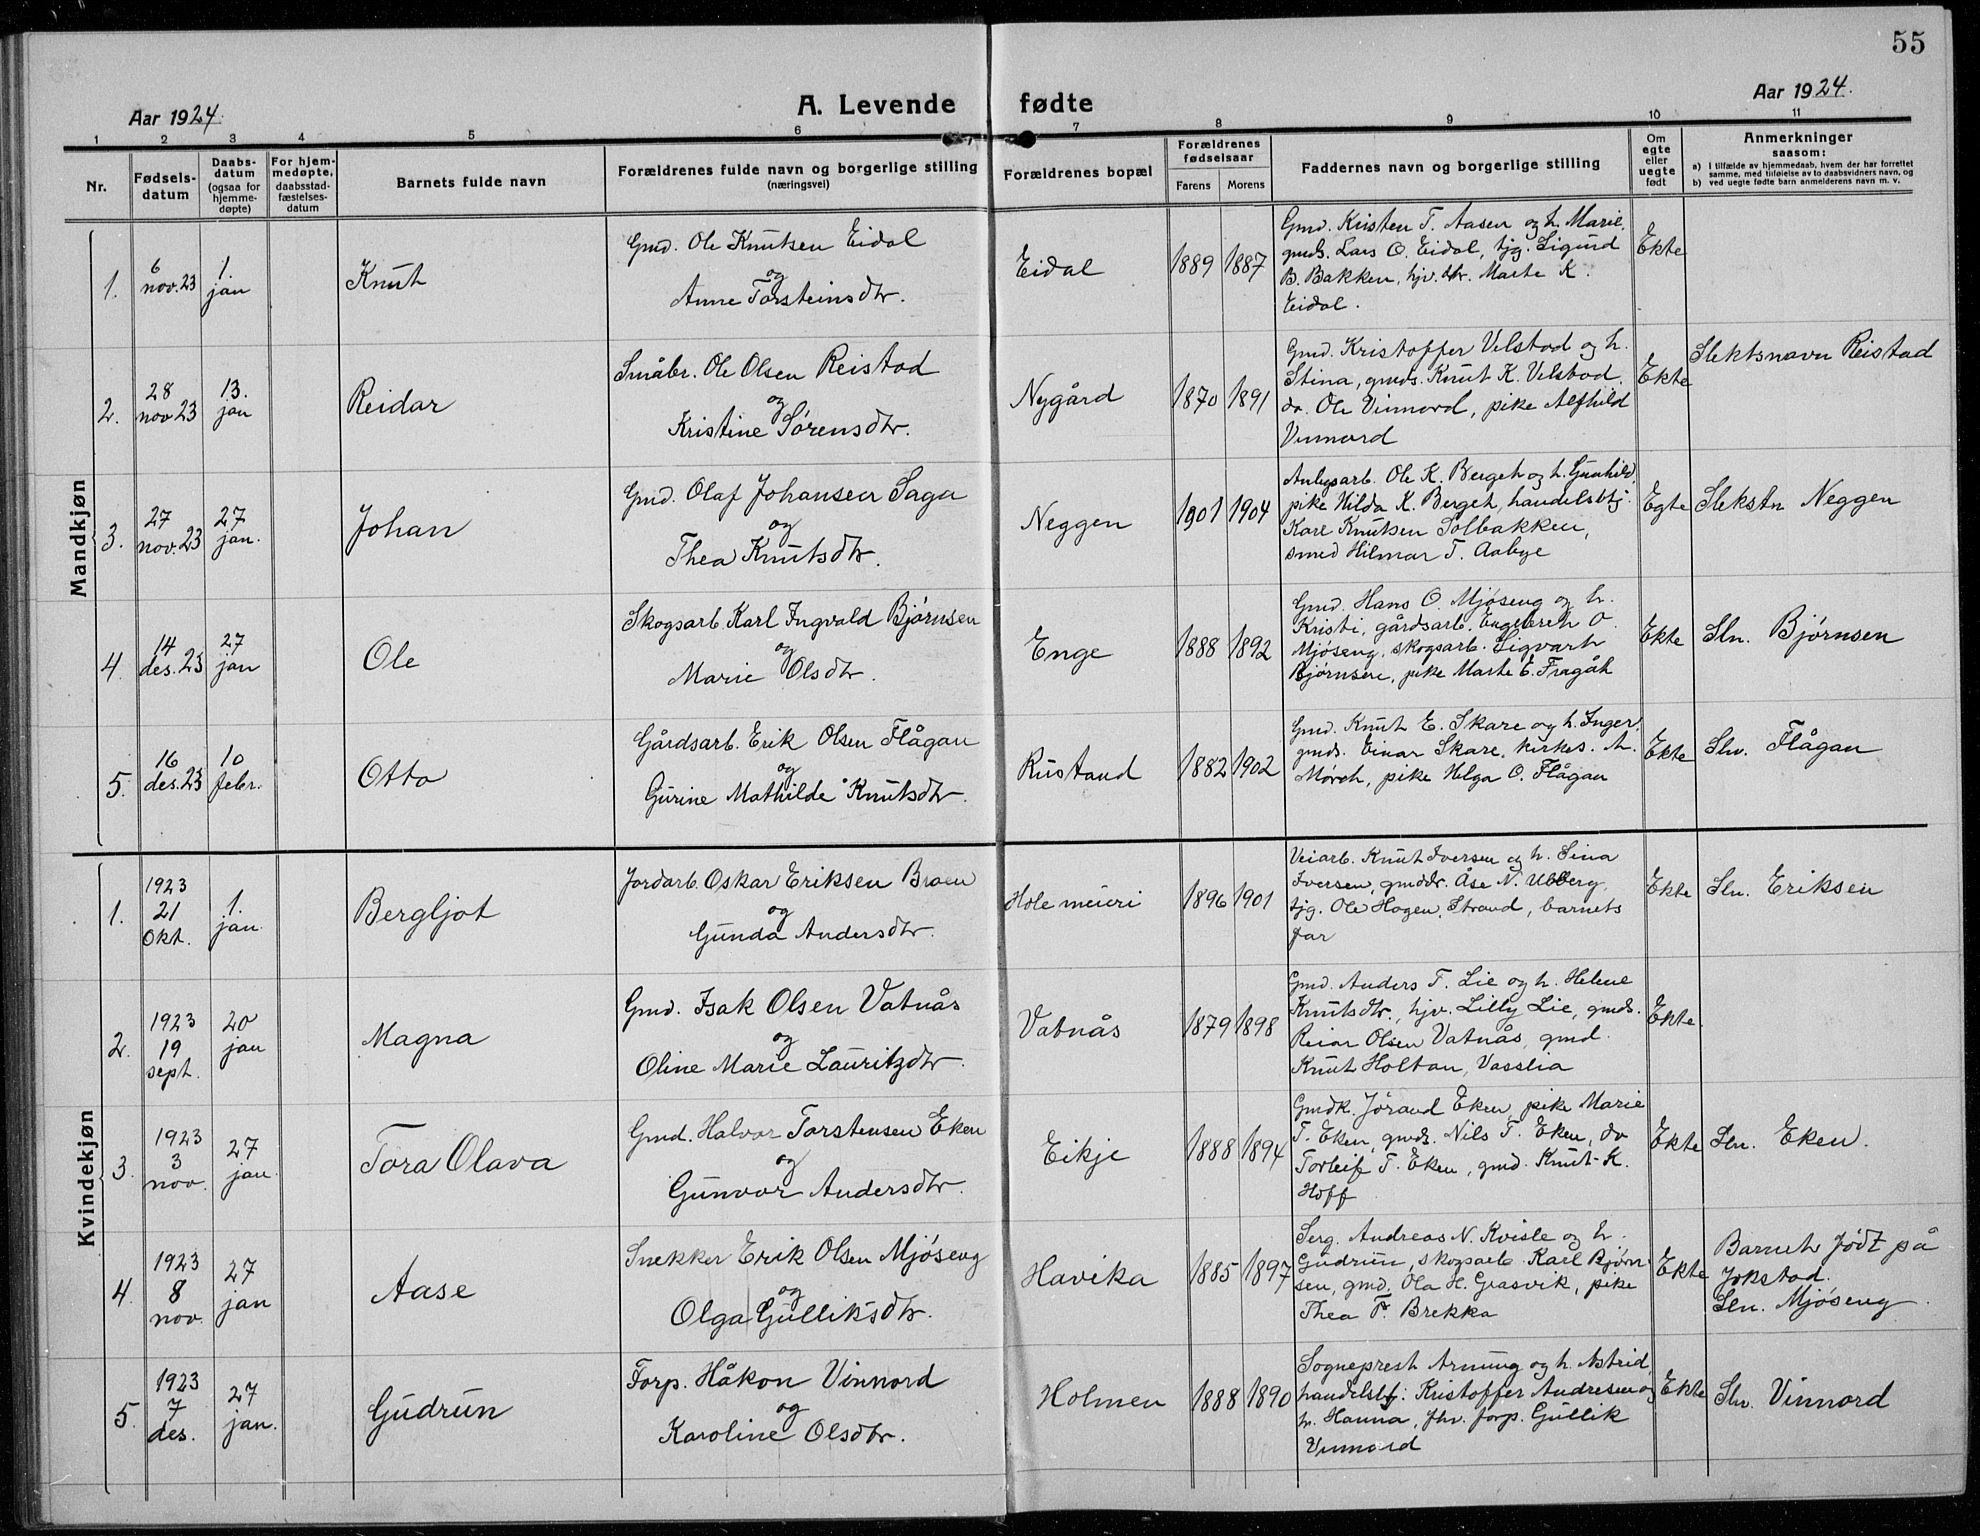 55
Aar 1924.
A. Levende fødte
Aar 1924.
1 2 3 4 5 6 7 8 9 10 11
Nr.
Fødsels-
datum
Daabs-
datum
(ogsaa for
hjemme-
døpte)
For hjem-
medøpte,
daabsstad-
fæstelses-
datum
Barnets fulde navn
Forældrenes fulde navn og borgerlige stilling
(næringsvei)
Forældrenes bopæl
Forældrenes
fødselsaar
Farens Morens
Faddernes navn og borgerlige stilling
Om
egte
eller
uegte
født
Anmerkninger
saasom:
a) I tilfælde av hjemmedaab, hvem der har forrettet
samme, med tilføielse av to daabsvidners navn, og
b) ved uegte fødte barn anmelderens navn m. v.
Mandkjøn
1.
6
nov. 23
1.
jan
Knut
Gmd. Ole Knutsen Eidal
og
Anne Torsteinsdtr.
Eidal
1889 1887
Gmd. Kristen T. Aasen og h. Marie,
gmds. Lars O. Eidal, tjg. Sigurd
B. Bakken, hjv. dtr. Marte K.
Eidal.
Ekte
2.
28
nov 23
13.
jan
Reidar
Småbr. Ole Olsen Reistad
og
Kristine Sørensdtr.
Nygård
1870 1891
Gmd. Kristoffer Velstad og h.
Stina, gmds. Knut K. Velstad.
do. Ole Vinnord, pike Alfhild
Vinnord
Ekte
Slektsnavn Reistad
3.
27
nov. 23
27
jan.
Johan
Gmd. Olaf Johansen Saga
og
Thea Knutsdtr.
Neggen
1901 1904
Anlegsarb. Ole K. Berget og h. Gunhild
pike Hilda K. Berget, handelsbtj.
Karl Knutsen Solbakken,
smed Hilmar T. Aabye
Egte
Slekstn Neggen
4.
14
des. 23
27
jan
Ole
Skogsarb Karl Ingvald Bjørnsen
og
Marie Olsdtr.
Enge
1888 1892
Gmd. Hans O. Mjøseng og h.
Kristi, gårdsarb. Engebret O.
Mjøseng, skogsarb. Sigvart
Bjørnsen, pike Marte E. Fragåt
Ekte
Sln. Bjørnsen
5.
16
des. 23
10
febr.
Otto
Gårdsarb. Erik Olsen Flågan
og
Gurine Mathilde Knutsdtr.
Rustand
1882 1902
Gmd. Knut E. Skare og h. Inger,
gmds. Einar Skare, kirkes. A.
Mørch, pike Helga O. Flågan
Ekte
Sln. Flågan
Kvindekjøn
1.
1923
21
Okt.
1.
jan.
Bergljot
Jordarb. Oskar Eriksen Braen
og
Gunda Andersdtr.
Hole meieri
1896 1901
Veiarb. Knut Iversen og h. Sina
Iversen, gmddr. Åse N. Ubberg,
tjg. Ole Hagen, Strand, barnets
far
Ekte
Sln. Eriksen
2.
1923
19
sept.
20
jan
Magna
Gmd. Isak Olsen Vatnås
og
Oline Marie Lauritzdtr.
Vatnås
1879 1898
Gmd. Anders T. Lie og h. Helene
Knutsdtr., hjv. Lilly Lie, gmds.
Reiar Olsen Vatnås, gmd.
Knut Holtan, Vasslia
Ekte.
3.
1923
3
nov.
27
jan.
Tora Olava
Gmd. Halvor Torstensen Eken
og
Gunvor Andersdtr.
Eikje
1888 1894
Gmdk. Jørand Eken, pike Marie
T. Eken, gmds. Nils T. Eken, do
Torleif T. Eken, gmd. Knut K.
Hoff
Ekte
Sln. Eken.
4.
1923
8
nov.
27
jan
Aase
Snekker Erik Olsen Mjøseng
og
Olga Gulliksdtr.
Havika
1885 1897
Serg. Andreas N. Kvisle og h.
Gudrun, skogsarb. Karl Bjørn-
sen, gmd. Ola H. Grasvik, pike
Thea P. Brekka
Ekte
Barnet født på
Jokstad.
Sln. Mjøseng.
5.
1923
7
des.
27
jan.
Gudrun
Forp. Håkon Vinnord
og
Karoline Olsdtr.
Holmen
1888 1890
Sogneprest Arnung og h. Astrid,
handelsbtj: Kristoffer Andresen og
h. Hanna, fhv. forp. Gullik
Vinnord
Ekte
Sln. Vinnord